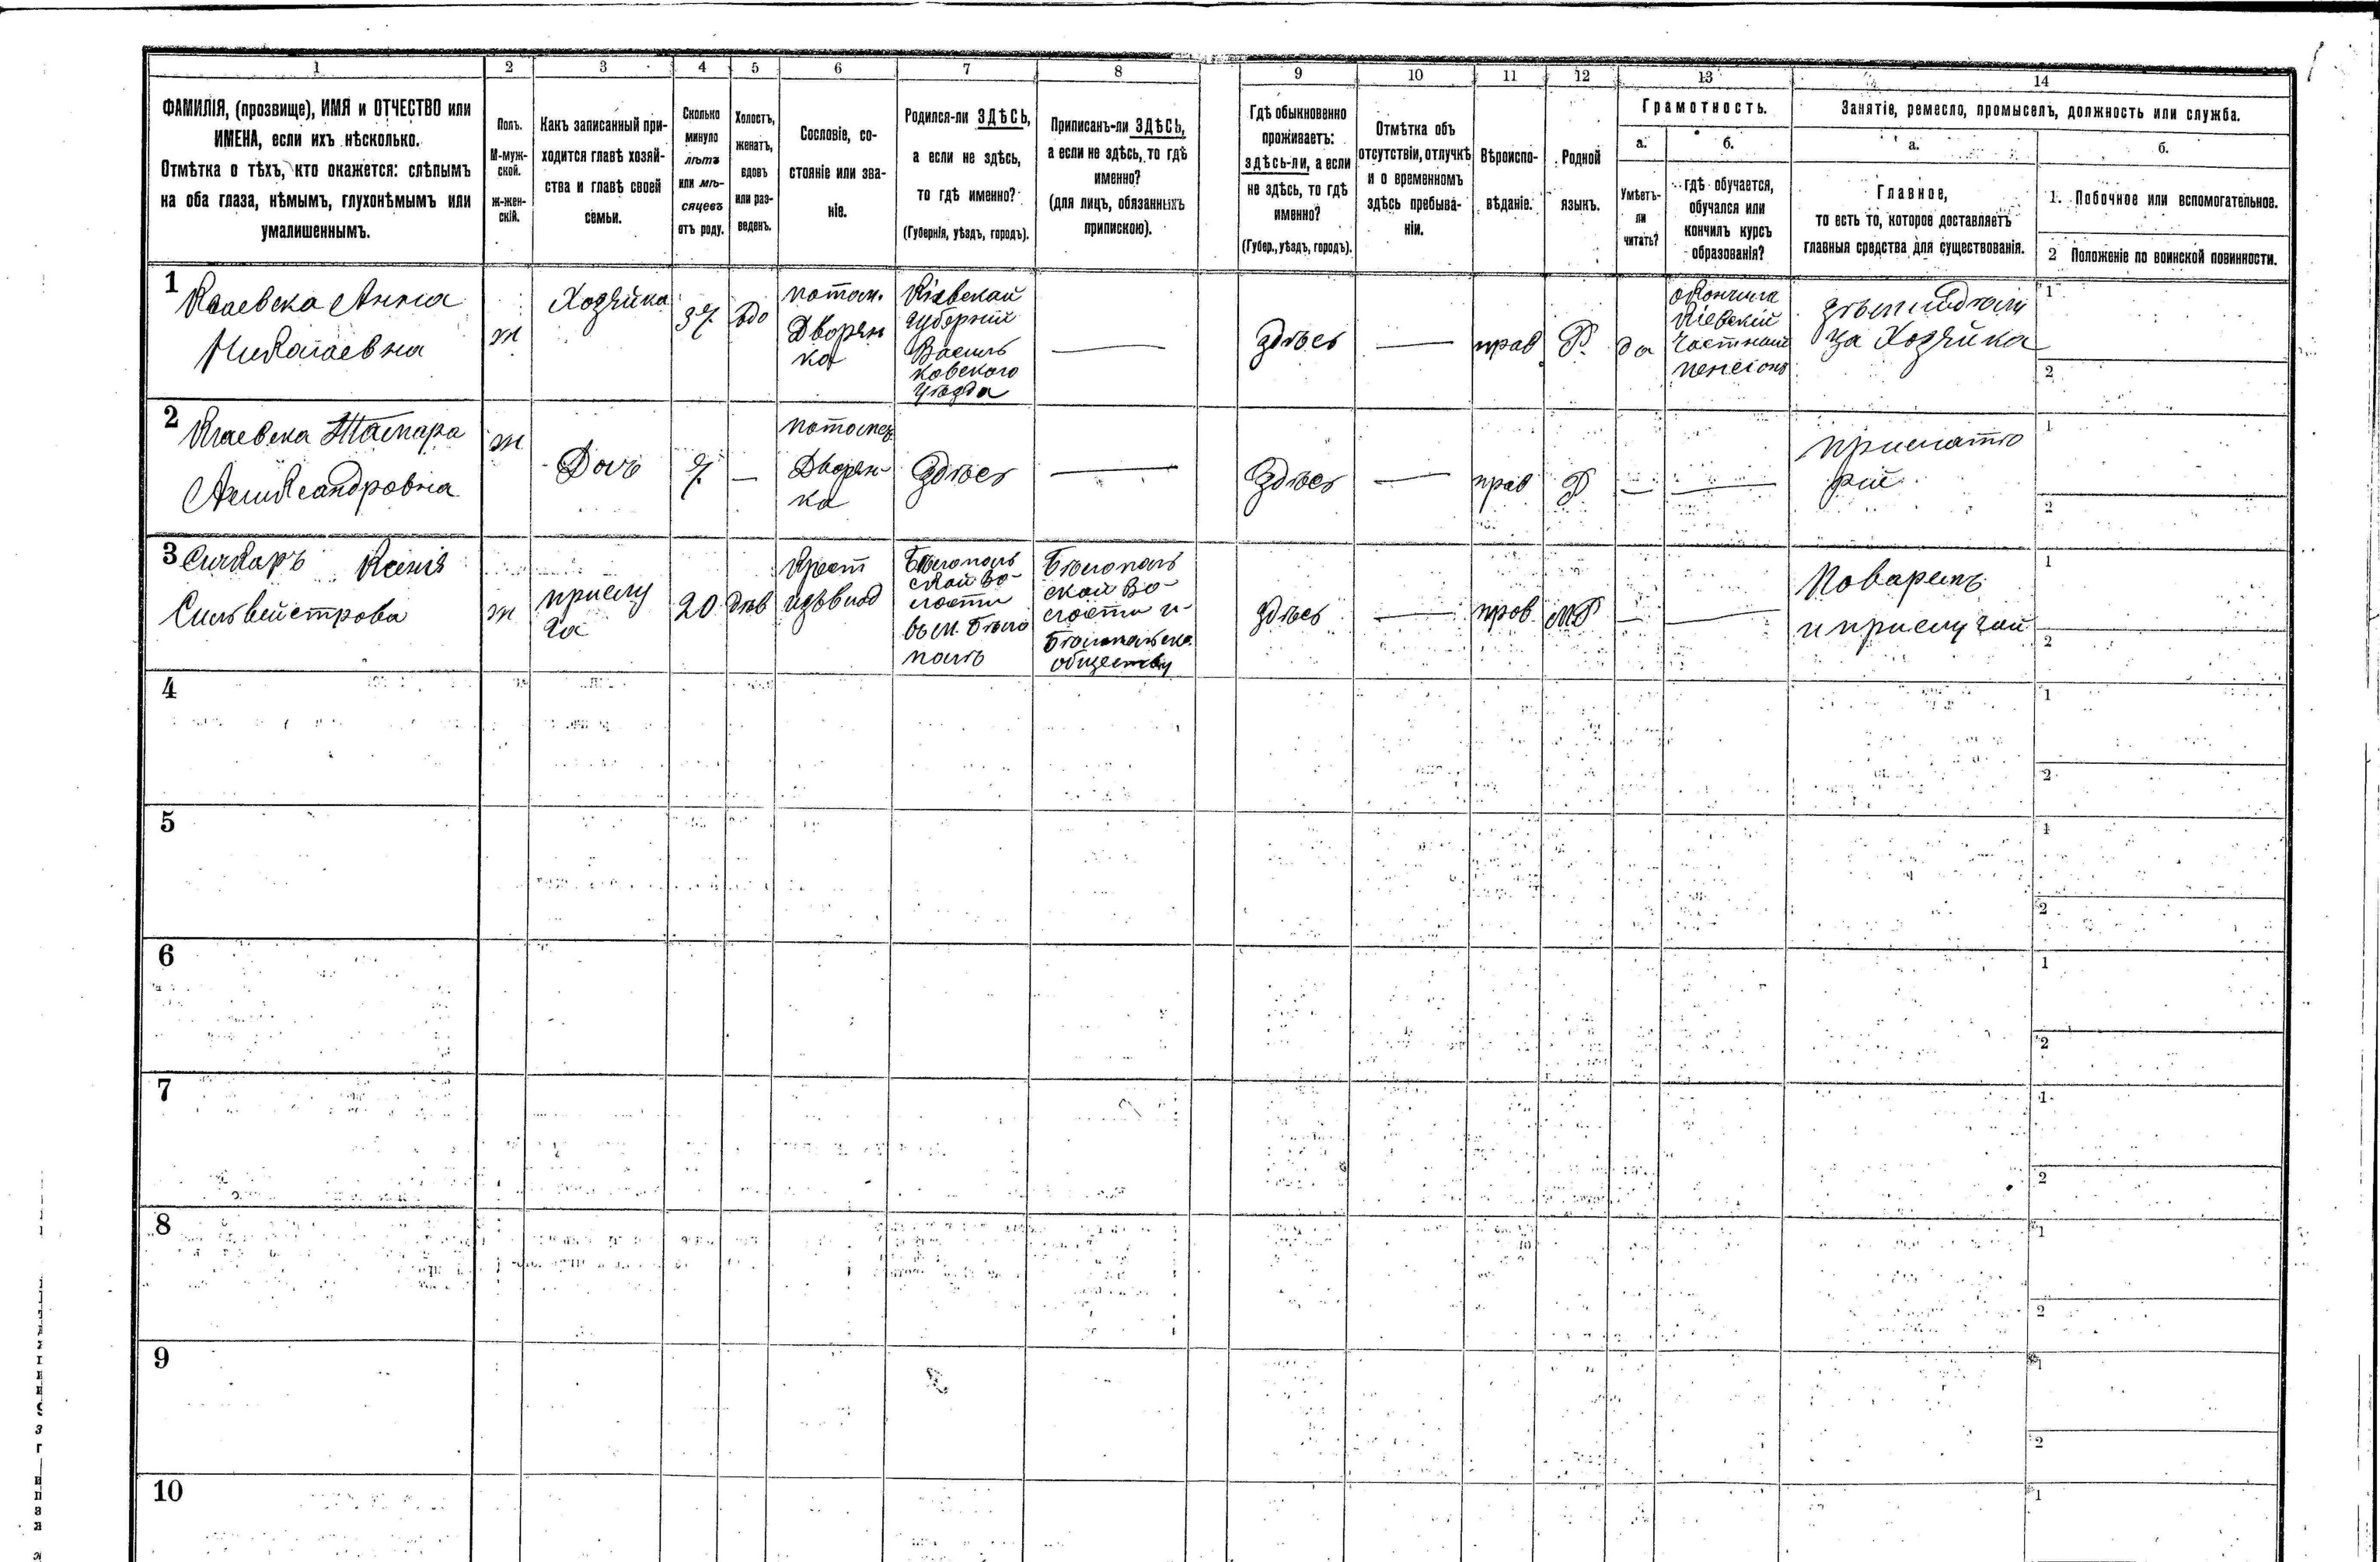 1 2 3 4 5 6 7 8 9 10 11 12 13 14
ФАМИЛІЯ, (прозвище), ИМЯ и ОТЧЕСТВО или
ИМЕНА, если ихъ нѣсколько.
Отмѣтка о тѣхъ, кто окажется: слѣпымъ
на оба глаза, нѣмымъ, глухонѣмымъ или
умалишеннымъ.
Полъ.
М-муж-
ской.
ж-жен-
скій.
Какъ записанный при-
ходится главѣ хозяй-
ства и главѣ своей
семьи.
Сколько
минуло
лѣтъ
или мѣ-
сяцевъ
отъ роду.
Холостъ,
женатъ,
вдовъ
или раз-
веденъ.
Сословіе, со-
стояніе или зва-
ніе.
Родился-ли ЗДѢСЬ,
а если не здѣсь,
то гдѣ именно?
(Губернія, уѣздъ, городъ).
Приписанъ-ли ЗДѢСЬ,
а если не здѣсь, то гдѣ
именно?
(для лицъ, обязанныхъ
припискою).
Гдѣ обыкновенно
проживаетъ:
здѣсь-ли, а если
не здѣсь, то гдѣ
именно?
(Губер., уѣздъ, городъ).
Отмѣтка объ
отсутствіи, отлучкѣ
и о временномъ
здѣсь пребыва-
ніи.
Вѣроиспо-
вѣданіе.
Родной
языкъ.
Грамотность.
а.
Умѣетъ-
ли
читать?
б.
гдѣ обучается,
обучался или
кончилъ курсъ
образованія?
Занятіе, ремесло, промыселъ, должность или служба.
а.
Главное,
то есть то, которое доставляетъ
главныя средства для существованія.
б.
1. Побочное или вспомогательное.
2 Положеніе по воинской повинности.
1
Анна
Николаевна
ж
Хозяйка
37
вдо
потом.
Дворян
ка
Кіевской
Губерніи
Василь
ковского
уѣзда
—
здѣсь
—
прав
Р.
да
окончила
Кіевскій
Частный
пенсіонъ
за Хозяйка
1
2
2
Тамара
Александровна
ж
Дочъ
7
—
Дворян
ка
Здѣсь
—
Здѣсь
—
прав
Р
—
—
при матѣ
рѣ
1
2
3
Ксенія
Сильвейстрова
ж
прислу
га
20
дѣв
Крест
Бѣлополь
ской во-
лости
въ м. Бѣло
полѣ
Бѣлополь
ской во-
лости и
обществу
здѣсь
—
пров
МР
—
—
и прислугой
1
2
4
1
2
5
1
2
6
1
2
7
1
2
8
1
2
9
1
2
10
1